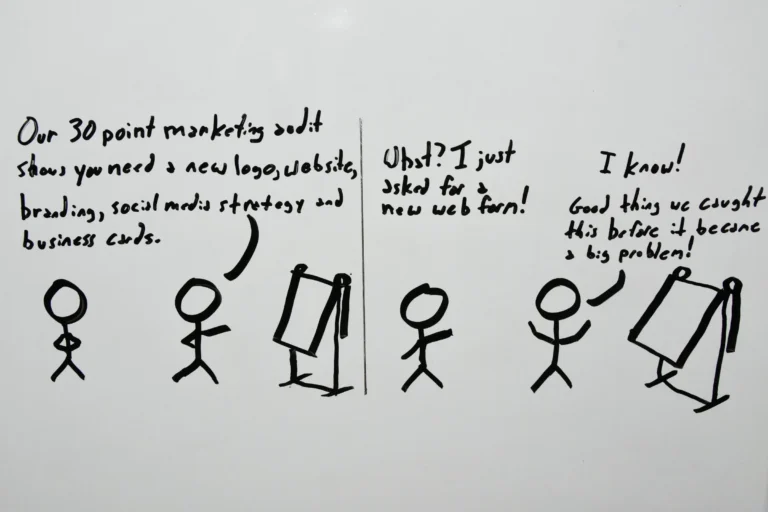 Our 30 point marketing audit
shows you need a new logo, website,
branding, social media strategy and
business cards.
What? I just
asked for a
new web form!
I know!
Good thing we caught
this before it became
a big problem!